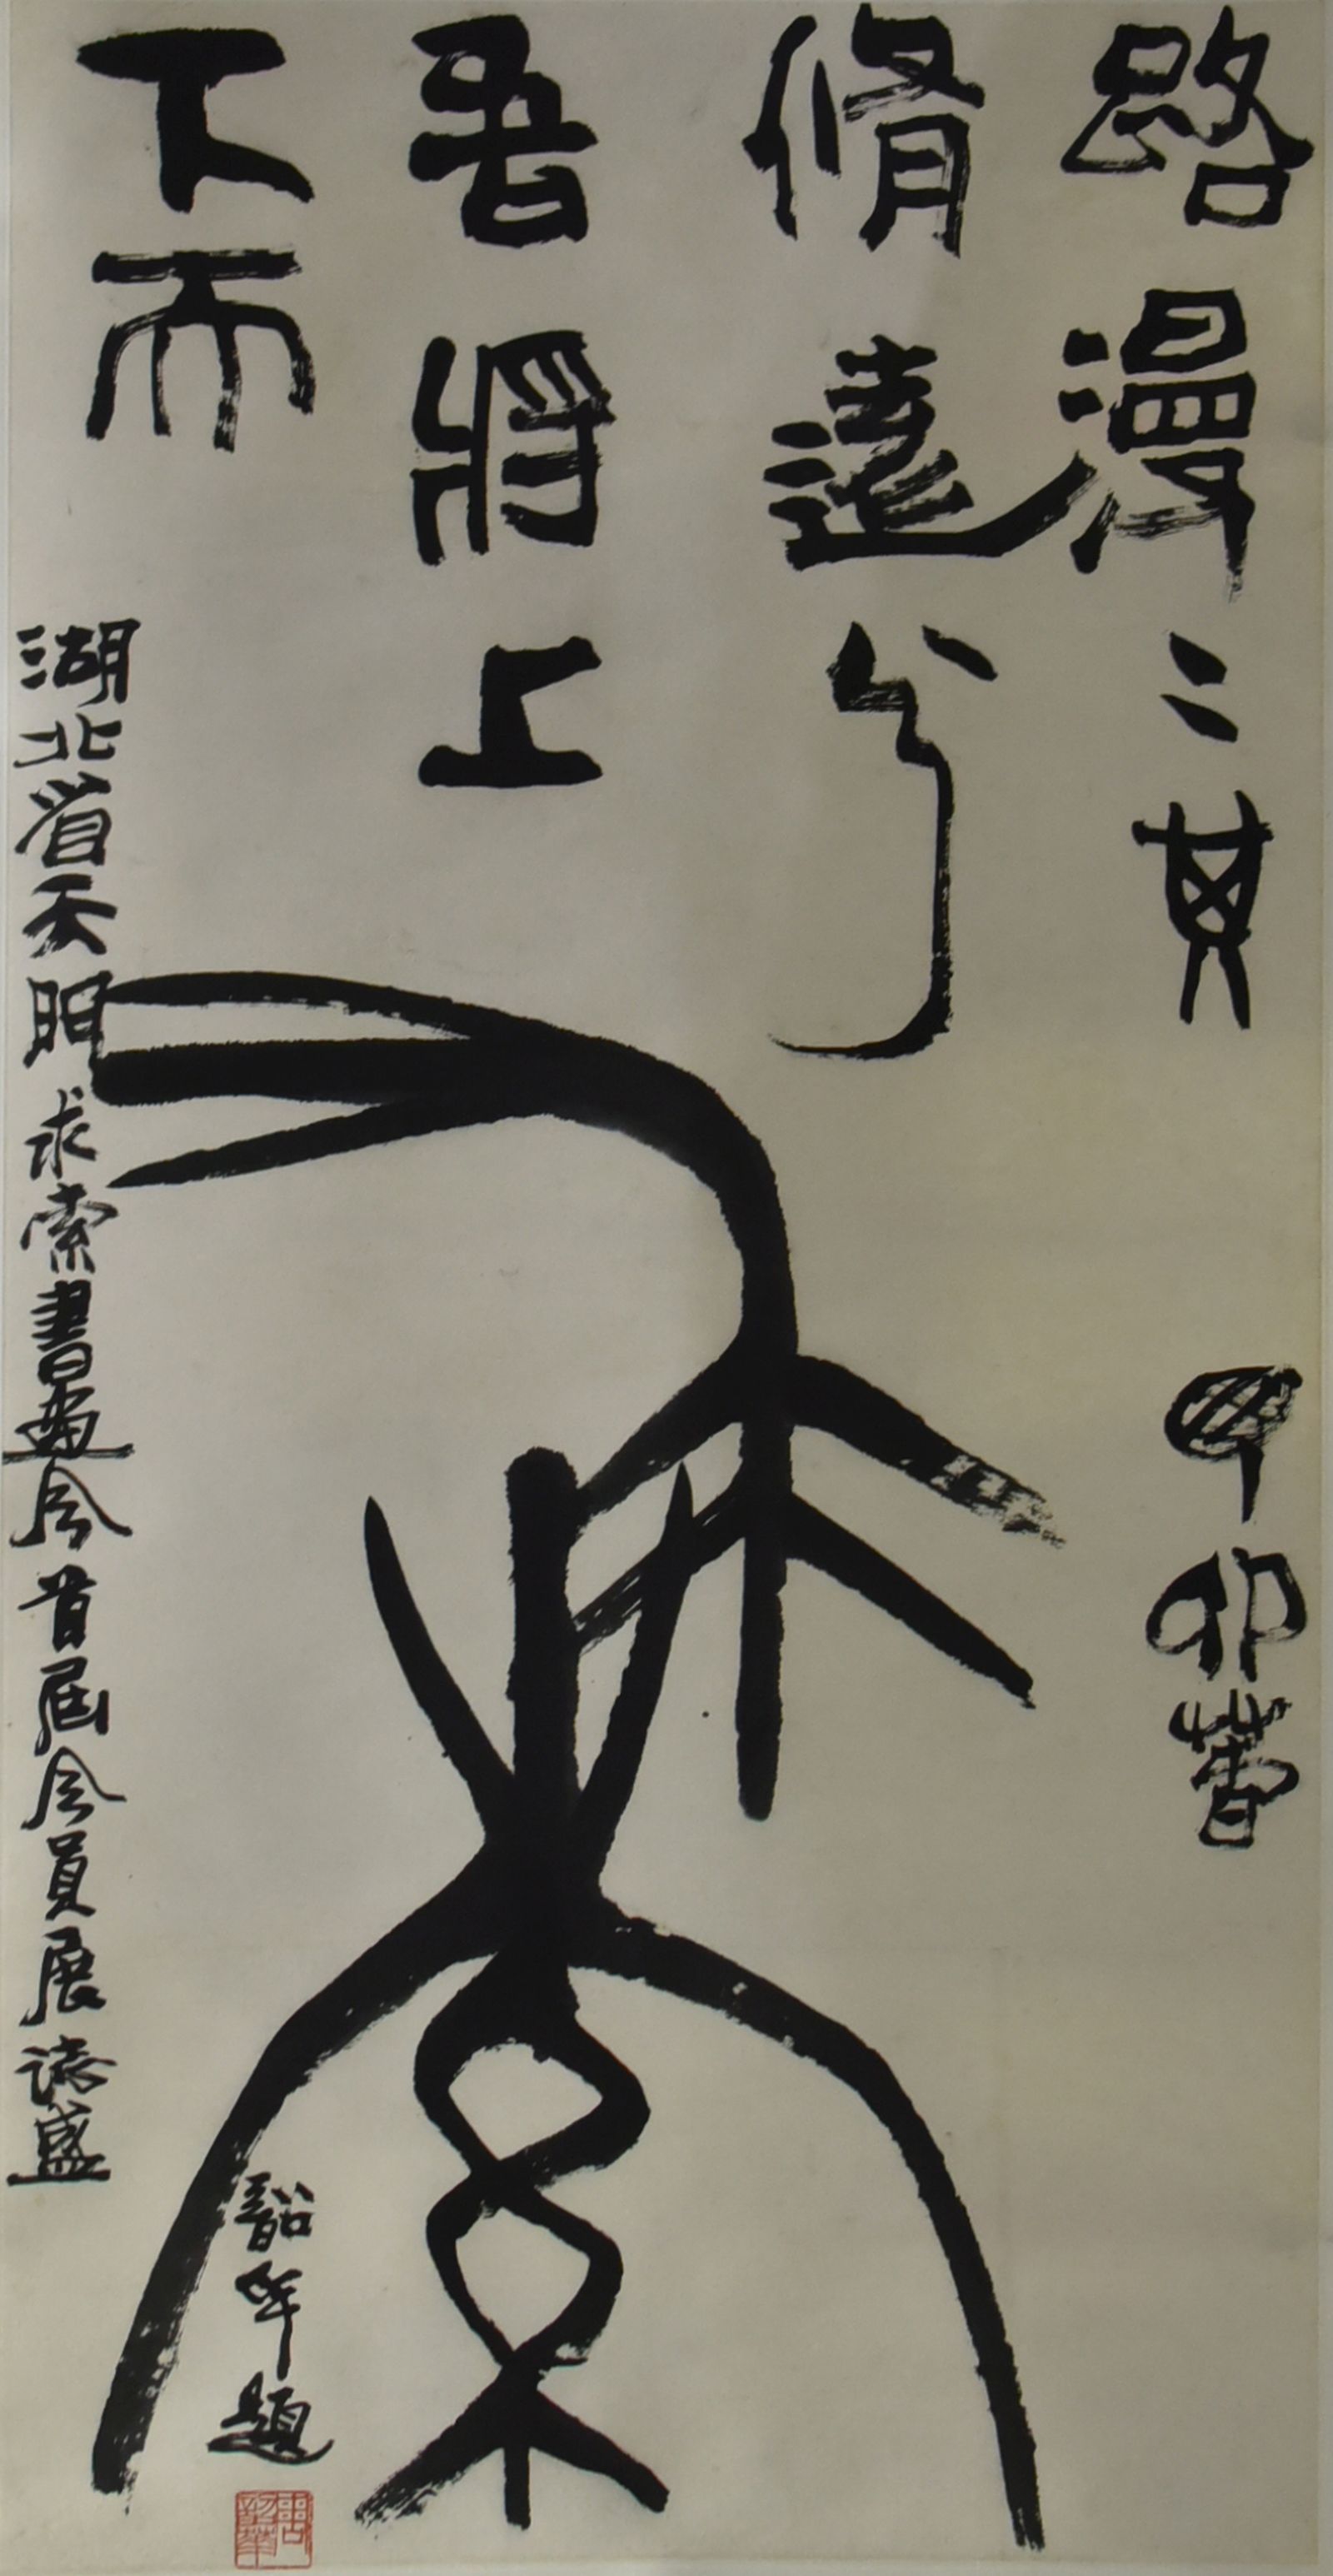 路漫二其
修遠兮
吾將上
下而
求索
丁卯春
湖北省天門求索書畫會首屆會員展誌盛
韶華題